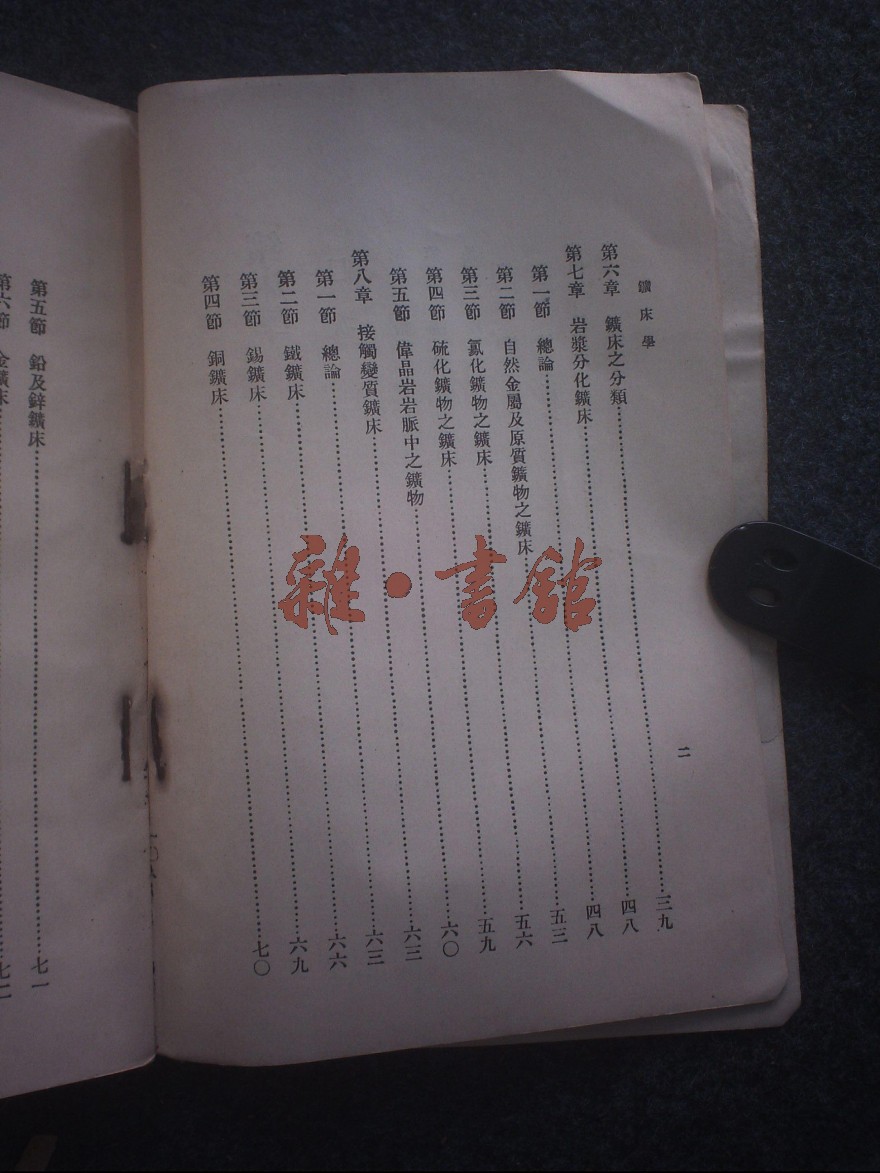 鑛床學 二
第六章 鑛床之分類……三九
第七章 岩漿分化鑛床……四八
第一節 總論……四八
第二節 自然金屬及原質鑛物之鑛床……五三
第三節 氱化鑛物之鑛床……五六
第四節 硫化鑛物之鑛床……五九
第五節 偉晶岩岩脈中之鑛物……六〇
第八章 接觸變質鑛床……六三
第一節 總論……六三
第二節 鐵鑛床……六六
第三節 錫鑛床……六九
第四節 銅鑛床……七〇
第五節 鉛及鋅鑛床……七一
第六節 金鑛床……七二
雜·書館